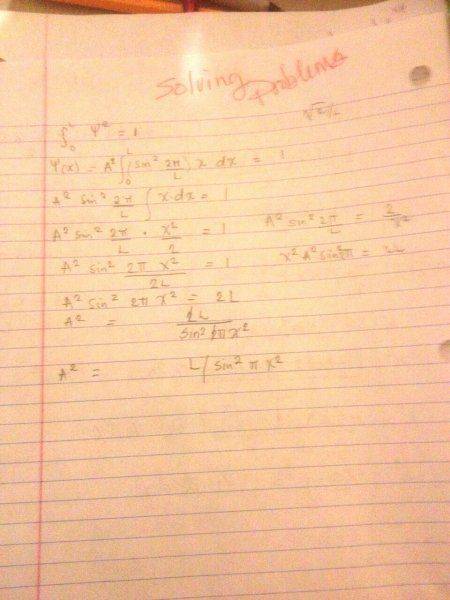 Solving Problems
√2/L
∫₀ᴸ Ψ² = 1
Ψ(x) = A² ∫₀ᴸ (sin² 2π/L) x dx = 1
A² sin² 2π/L ∫ x·dx = 1
A² sin² 2π/L · x²/2 = 1
A² sin² 2π/L = 2/x²
A² sin² 2π x²/2L = 1
x² A² sin² 2π = 2L
A² sin² 2π x² = 2L
A² = 2L/sin² 2π x²
A² = L/sin² π x²